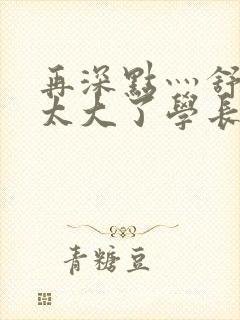 再深點灬舒
太大了學長
青糖豆